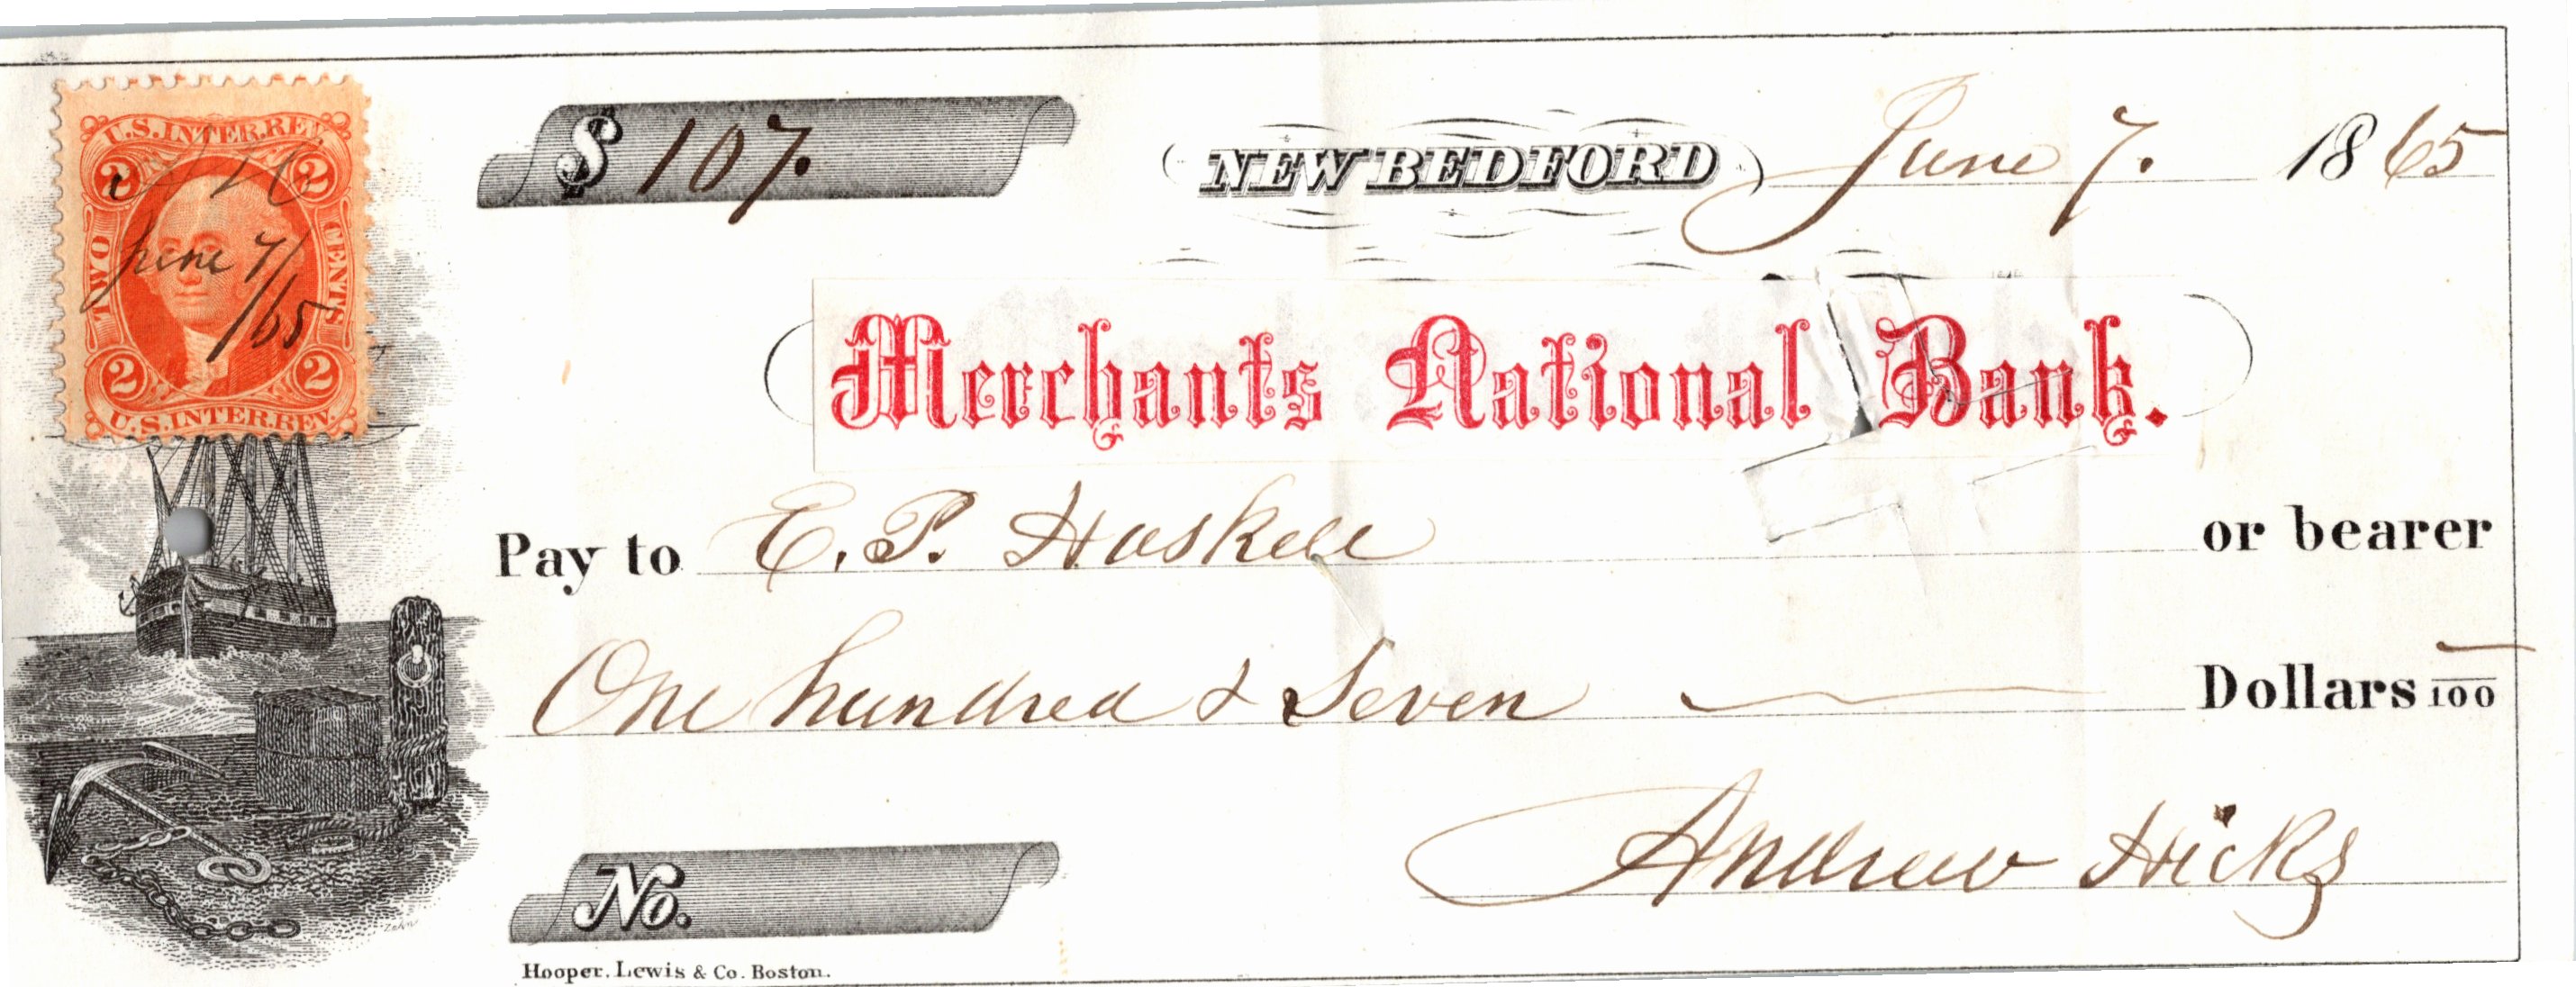 U.S. INTER. REV.
2 2
A H
June 7/65
TWO CENTS
2 2
U.S. INTER. REV.
$ 107.
NEW BEDFORD June 7. 1865
Merchants National Bank.
Pay to E. P. Haskell or bearer
One hundred & Seven Dollars /100
Andrew Hicks
No.
Hooper, Lewis & Co. Boston.